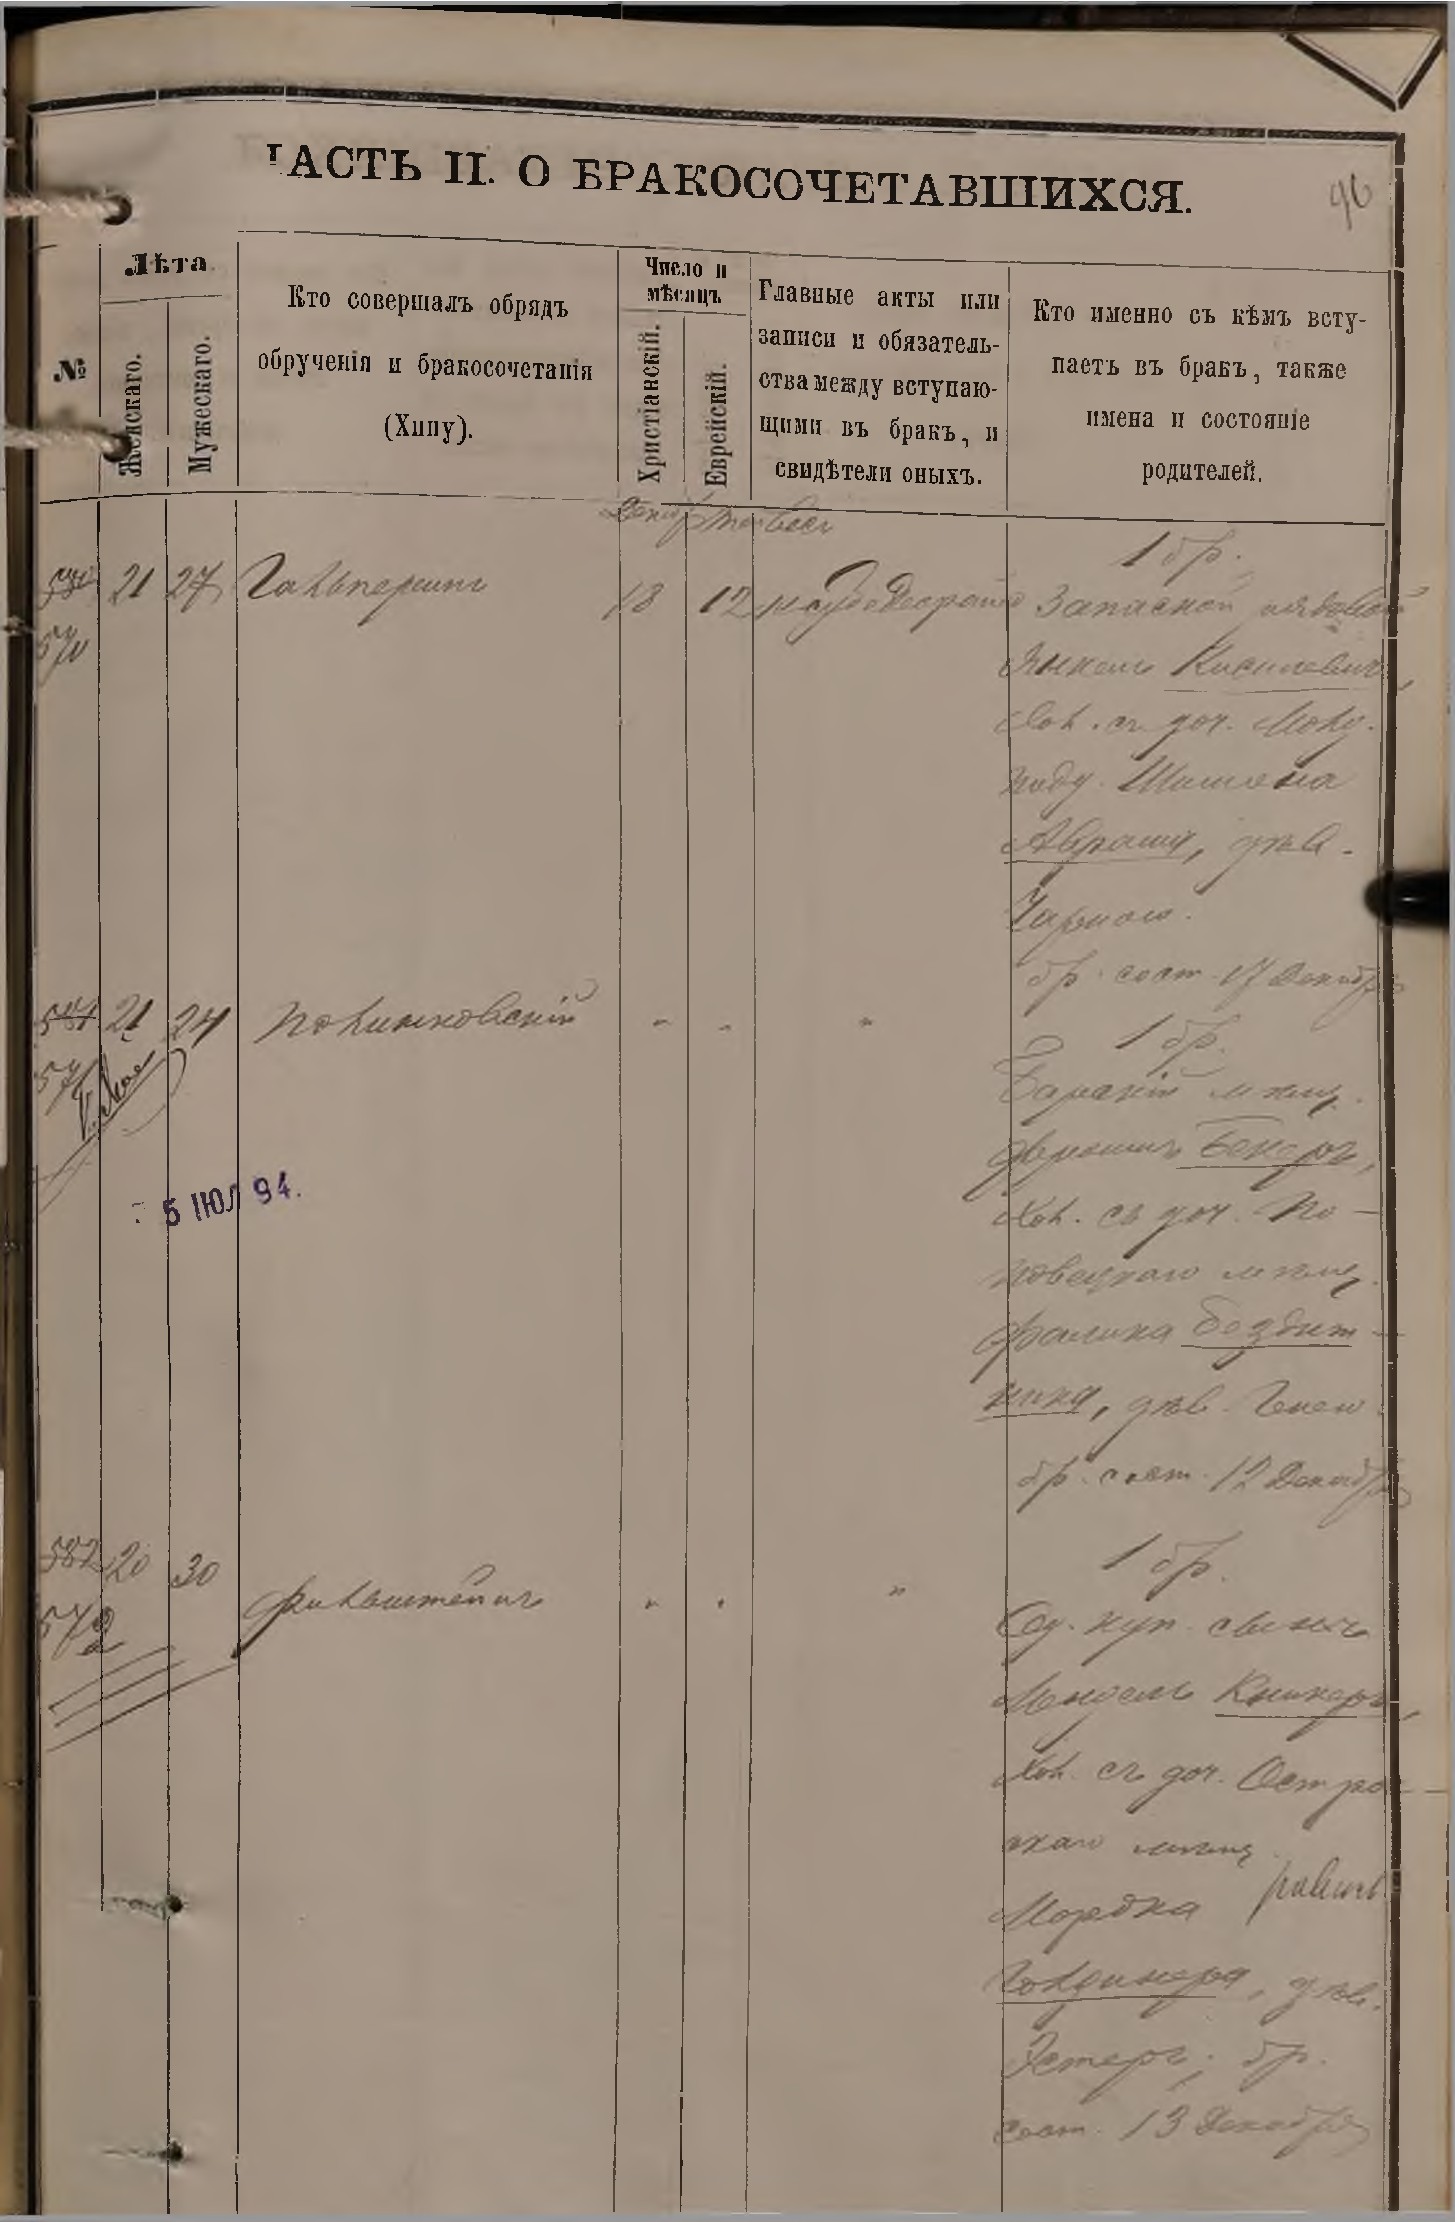 ЧАСТЬ II. О БРАКОСОЧЕТАВШИХСЯ.
96
№
Лѣта
Женскаго.
Мужескаго.
Кто совершалъ обрядъ
обрученія и бракосочетанія
(Хипу).
Число и
мѣсяцъ
Христіанскій.
Еврейскій.
Главные акты или
записи и обязатель-
ства между вступаю-
щими въ бракъ, и
свидѣтели оныхъ.
Кто именно съ кѣмъ всту-
паетъ въ бракъ, также
имена и состояніе
родителей.
Декабр Тейвесъ
580 21 27 Гальперинъ 18 12
570
1 бр.
Запасной рядовой
Янкель Кисилевичъ,
Хол. съ доч.
Шиმона
Аврама, дѣв.
Чарною.
бр. сост. 17 Декабря
581 21 24 Полинковскій " " "
571
5 ІЮЛ 94.
1 бр.
Барскій мѣщ.
Аврамъ Бекеръ,
Хол. съ доч. По-
новецкаго мѣщ.
Фалика Бездит-
ника, дѣв. Генею
бр. сост. 12 Декабря
582 20 30 Финкельштейнъ " " "
572
1 бр.
Од. куп. сынъ
Мендель Книжеръ,
Хол. съ доч. Остро-
жскаго мѣщ.
Мордка
Голдинера, дѣв.
Эстеръ; бр.
сост. 13 Декабря